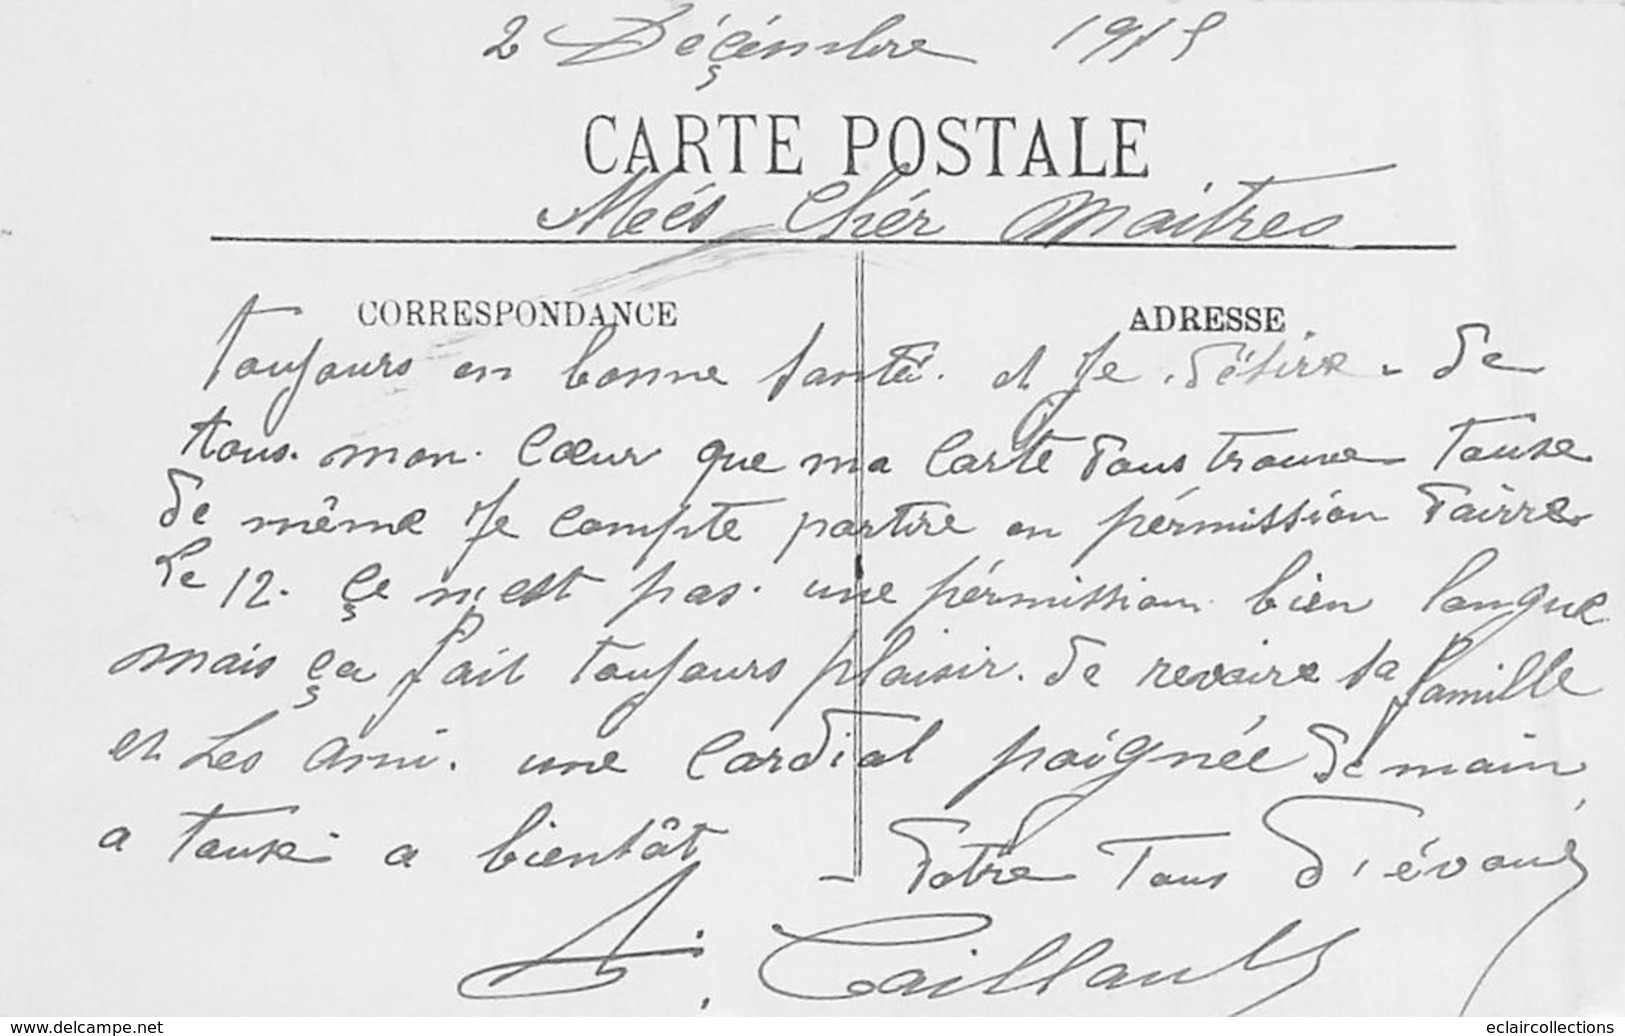 2 Déçémbre 1915
CARTE POSTALE
Méés Chér Maitres
CORRESPONDANCE
ADRESSE
Toujours en bonne santé. et Je désire de
tous. mon. Cœur que ma Carte vous trouve
de même Je compte partire en pérmission
Le 12. çe n'est pas. une pérmission bien longue
mais ça fait toujours plaisir. de revoire sa famille
et Les ami. une Cordial poignée de main
a tous a bientôt Votre Tous d'évoué
A. Caillault
www.delcampe.net
eclaircollections